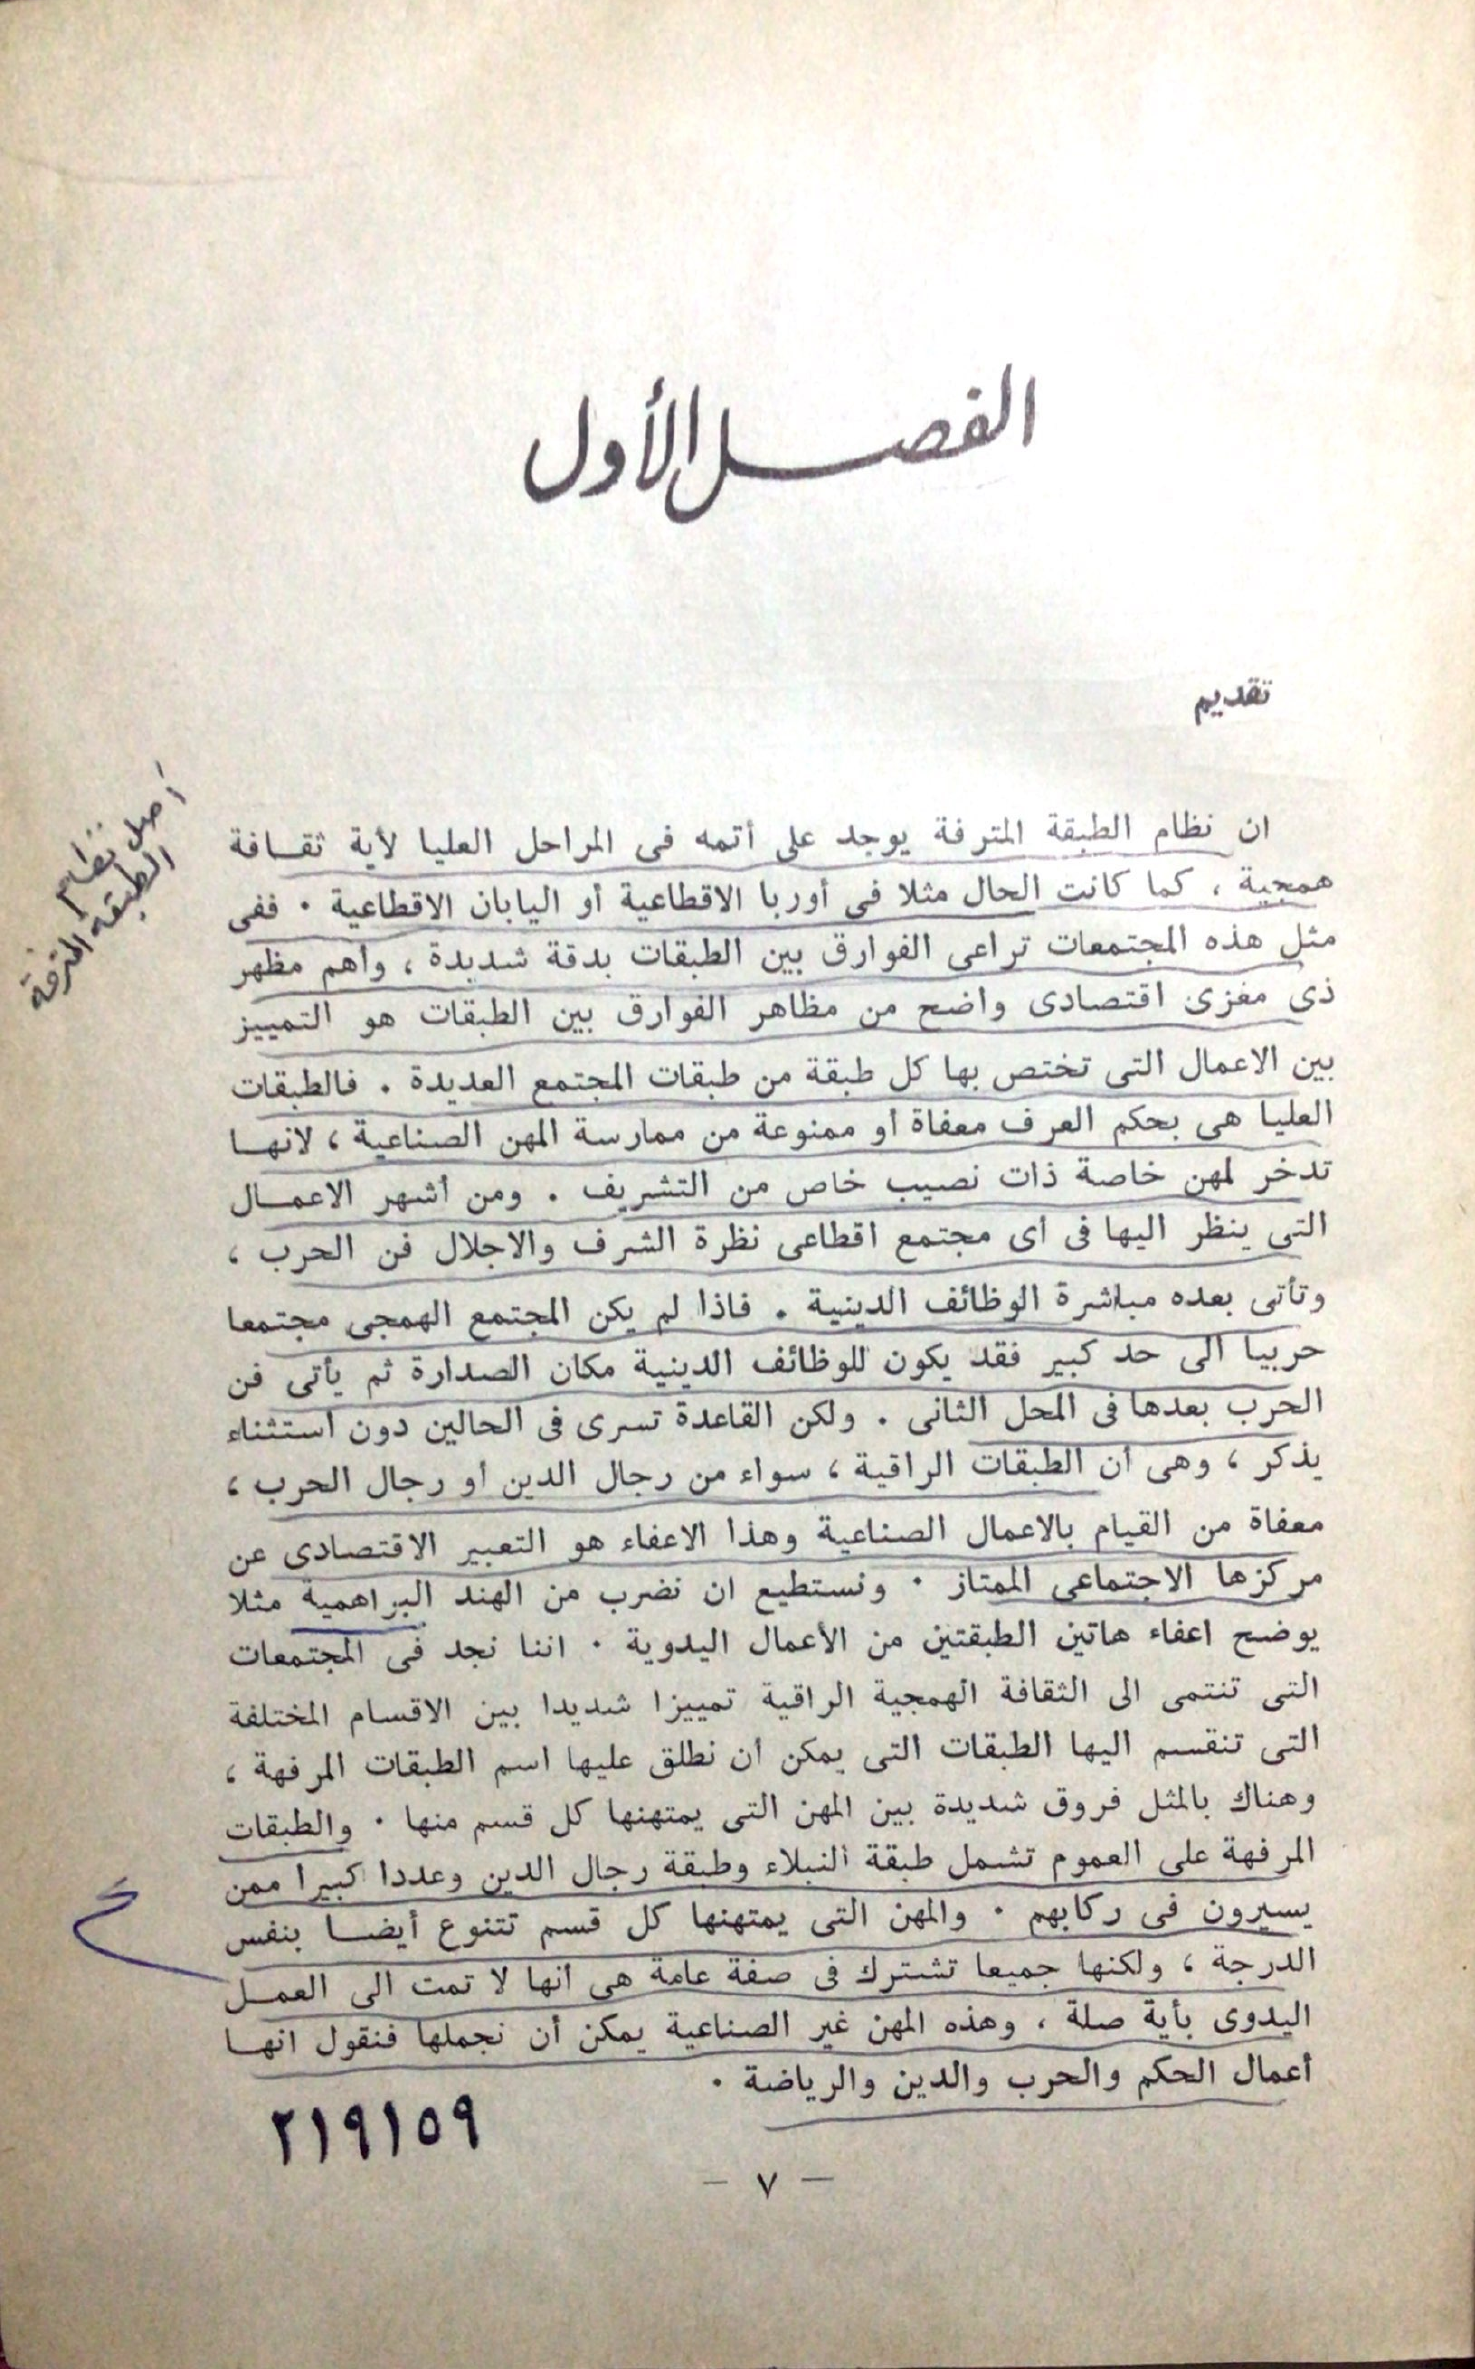 الفصل الأول
تقديم
أصل نظام
الطبقة المترفة
ان نظام الطبقة المترفة يوجد على أتمه فى المراحل العليا لأية ثقافة
همجية ، كما كانت الحال مثلا فى أوربا الاقطاعية أو اليابان الاقطاعية . ففى
مثل هذه المجتمعات تراعى الفوارق بين الطبقات بدقة شديدة ، وأهم مظهر
ذى مغزى اقتصادى واضح من مظاهر الفوارق بين الطبقات هو التمييز
بين الاعمال التى تختص بها كل طبقة من طبقات المجتمع العديدة . فالطبقات
العليا هى بحكم العرف معفاة أو ممنوعة من ممارسة المهن الصناعية ، لانها
تدخر لمهن خاصة ذات نصيب خاص من التشريف . ومن أشهر الاعمال
التى ينظر اليها فى أى مجتمع اقطاعى نظرة الشرف والاجلال فن الحرب ،
وتأتى بعده مباشرة الوظائف الدينية . فاذا لم يكن المجتمع الهمجى مجتمعا
حربيا الى حد كبير فقد يكون للوظائف الدينية مكان الصدارة ثم يأتى فن
الحرب بعدها فى المحل الثانى . ولكن القاعدة تسرى فى الحالين دون استثناء
يذكر ، وهى أن الطبقات الراقية ، سواء من رجال الدين أو رجال الحرب ،
معفاة من القيام بالاعمال الصناعية وهذا الاعفاء هو التعبير الاقتصادى عن
مركزها الاجتماعى الممتاز . ونستطيع ان نضرب من الهند البراهمية مثلا
يوضح اعفاء هاتين الطبقتين من الأعمال اليدوية . اننا نجد فى المجتمعات
التى تنتمى الى الثقافة الهمجية الراقية تمييزا شديدا بين الاقسام المختلفة
التى تنقسم اليها الطبقات التى يمكن أن نطلق عليها اسم الطبقات المرفهة ،
وهناك بالمثل فروق شديدة بين المهن التى يمتهنها كل قسم منها . والطبقات
المرفهة على العموم تشمل طبقة النبلاء وطبقة رجال الدين وعددا كبيرا ممن
يسيرون فى ركابهم . والمهن التى يمتهنها كل قسم تتنوع أيضا بنفس
الدرجة ، ولكنها جميعا تشترك فى صفة عامة هى أنها لا تمت الى العمل
اليدوى بأية صلة ، وهذه المهن غير الصناعية يمكن أن نجملها فنقول انها
أعمال الحكم والحرب والدين والرياضة .
٢١٩١٥٩
— ٧ —